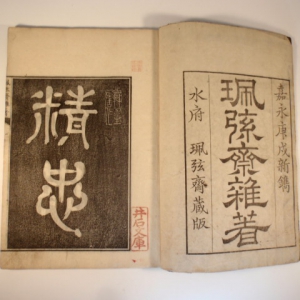 嘉永庚戌新鐫
珮弦齋雜著
水府 珮弦齋蔵版
精忠
井石文庫